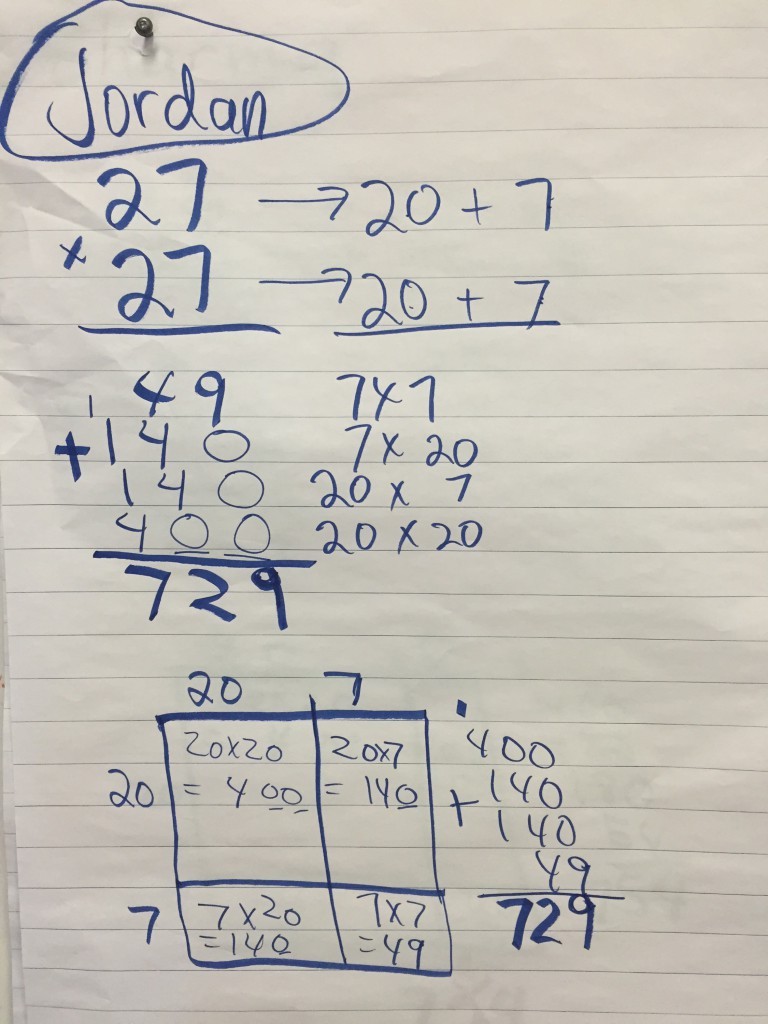 Jordan
27 → 20 + 7
× 27 → 20 + 7
1 49 7×7
+140 7 × 20
140 20 × 7
400 20 × 20
729
20 7
20 20×20 = 400 20×7 = 140
7 7×20 =140 7×7 =49
400
+140
140
49
729